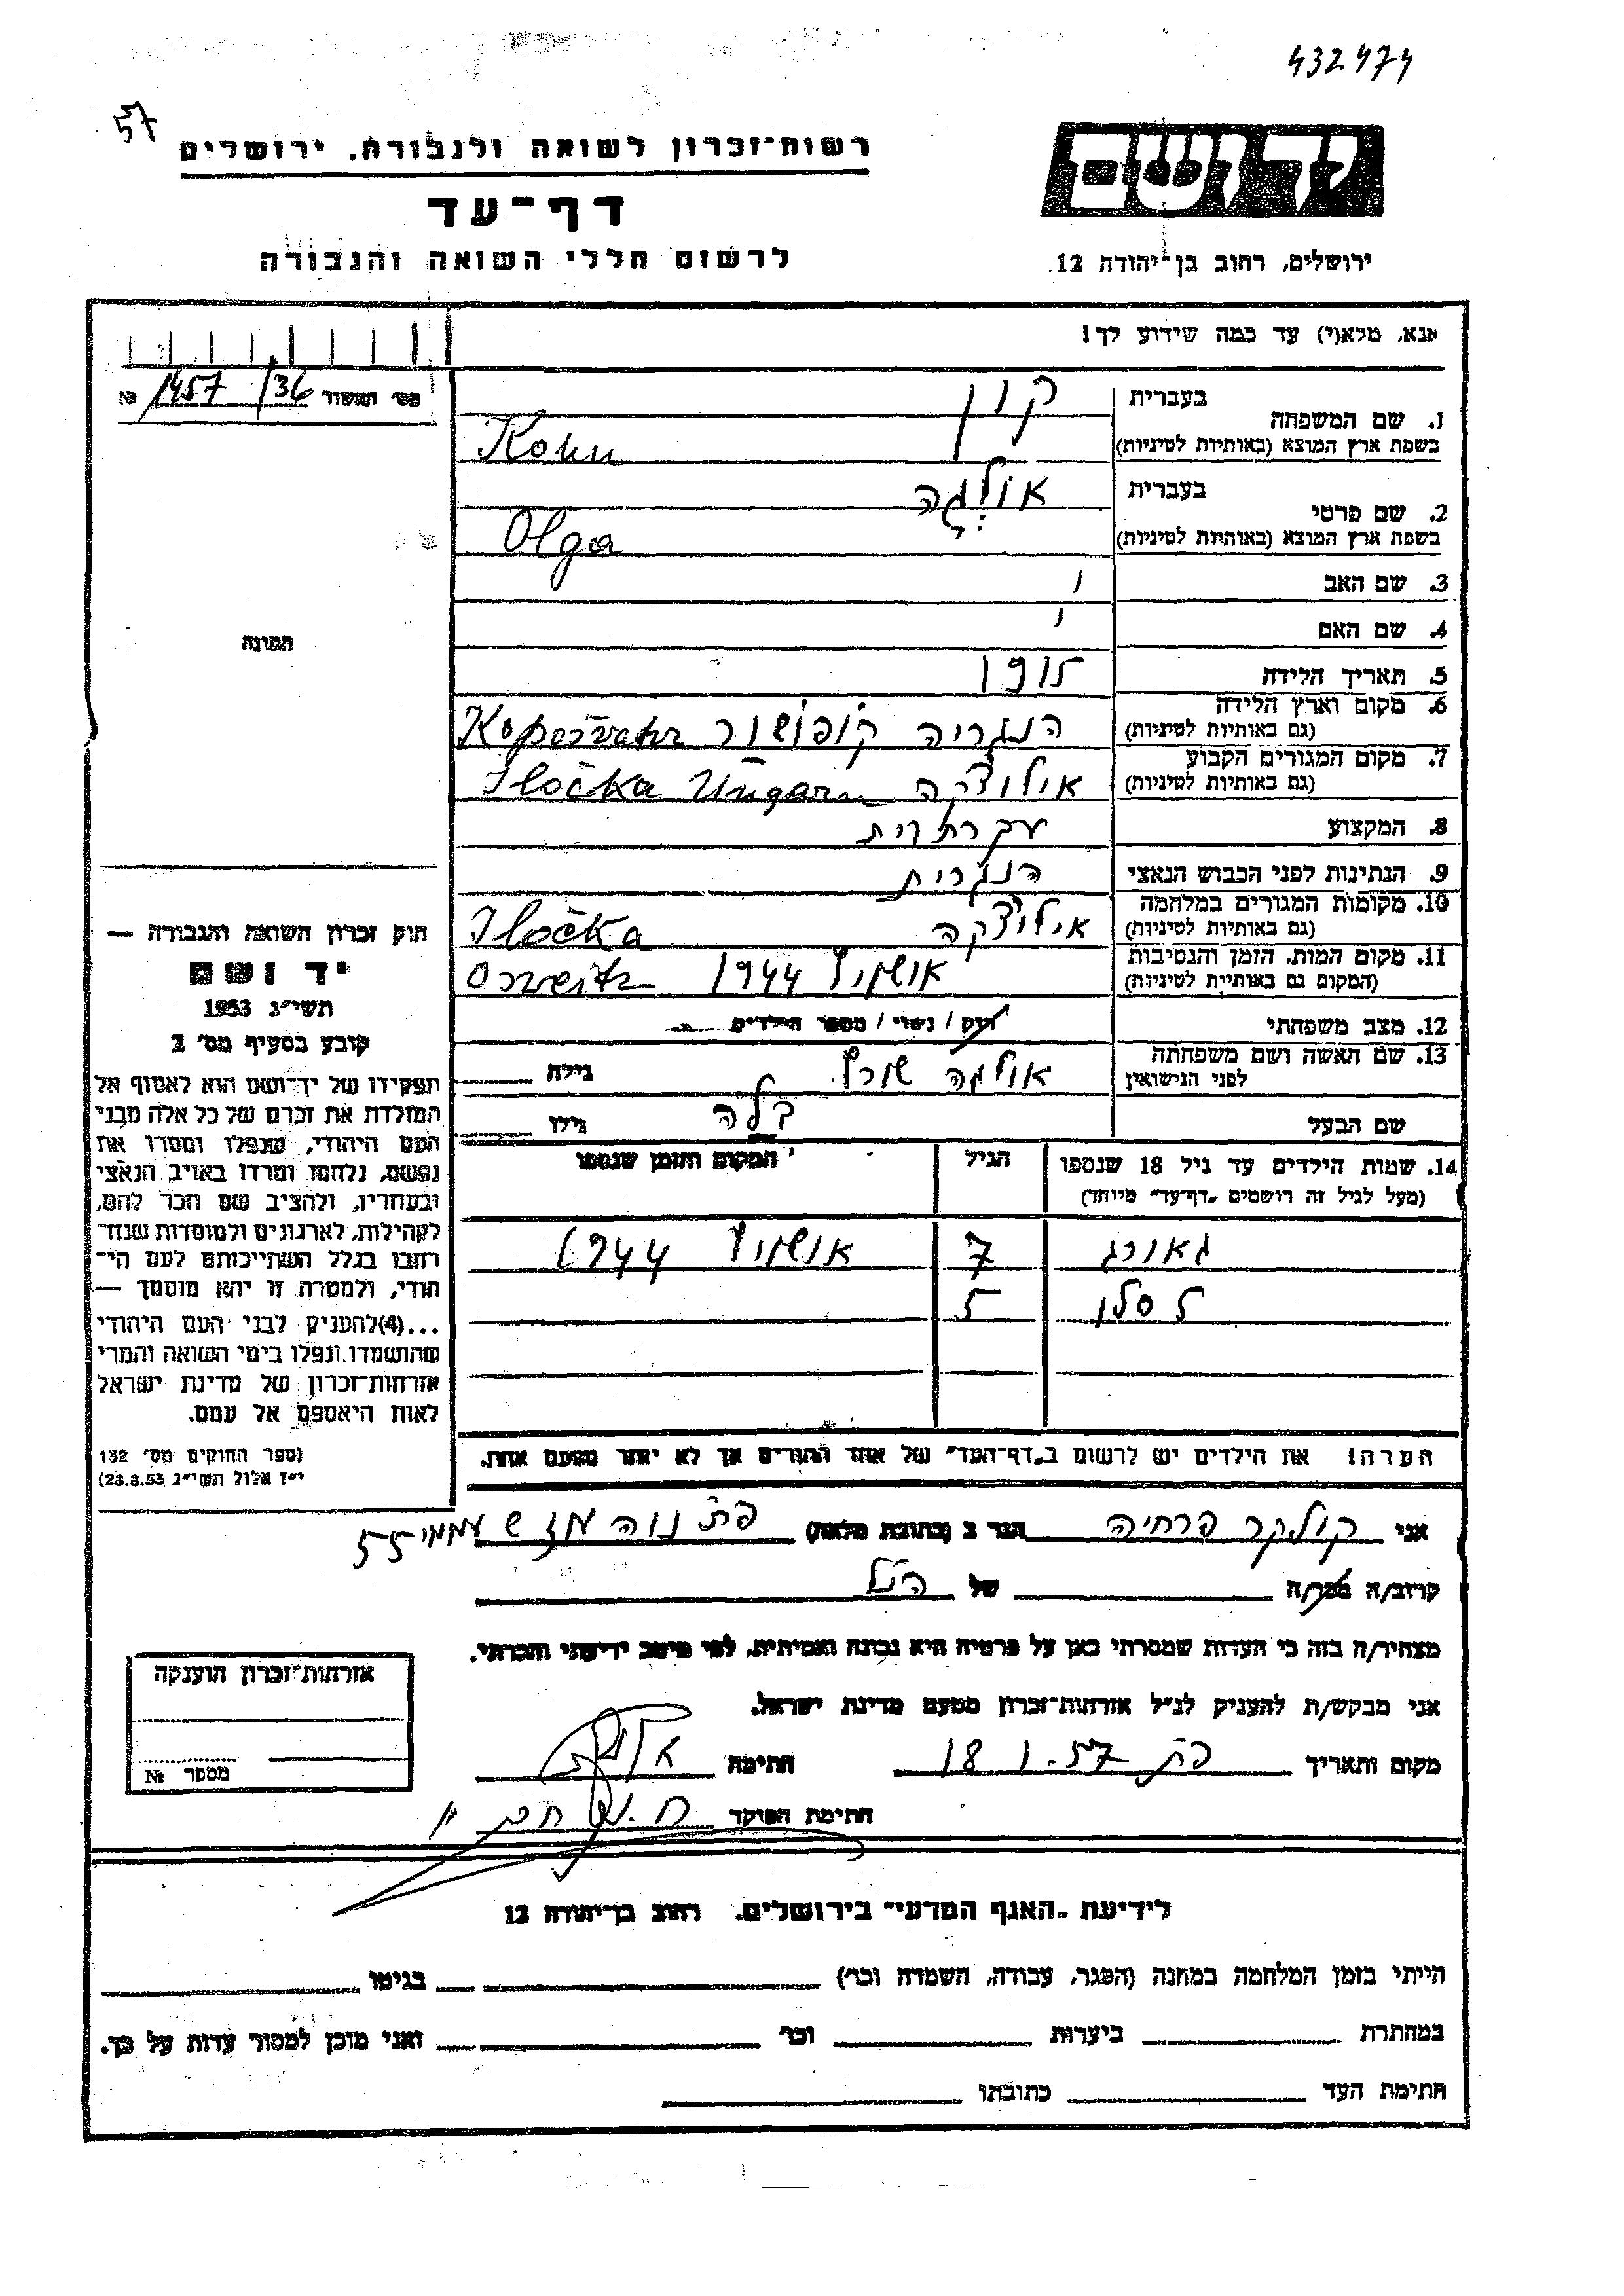 432474
57
יד ושם
רשות־זכרון לשואה ולגבורה, ירושלים
דף־עד
לרשום חללי השואה והגבורה
ירושלים, רחוב בן־יהודה 12
אנא, מלא(י) עד כמה שידוע לך!
מס׳ האשור 1457/36 №
1. שם המשפחה
בעברית קון
בשפת ארץ המוצא (באותיות לטיניות) Kohn
2. שם פרטי
בעברית אולגה
בשפת ארץ המוצא (באותיות לטיניות) Olga
3. שם האב
4. שם האם
5. תאריך הלידה
6. מקום וארץ הלידה הנגריה קופושור
(גם באותיות לטיניות)
7. מקום המגורים הקבוע אילוצקה Iločka Ungarn
(גם באותיות לטיניות)
8. המקצוע עקרתבית
9. הנתינות לפני הכבוש הנאצי הנגרית
10. מקומות המגורים במלחמה אילוצקה Iločka
(גם באותיות לטיניות)
11. מקום המות, הזמן והנסיבות אושויץ 1944
(המקום גם באותיות לטיניות)
12. מצב משפחתי רוק / נשוי / מספר הילדים
13. שם האשה ושם משפחתה אולגה שורץ גילה
לפני הנישואין
שם הבעל בלה גילו
14. שמות הילדים עד גיל 18 שנספו הגיל המקום והזמן שנספו
(מעל לגיל זה רושמים „דף־עד״ מיוחד)
גאורג 7 אושויץ 1944
לסלו 5
הערה! את הילדים יש לרשום ב„דף־העד״ של אחד ההורים אך לא יותר מפעם אחת.
תמונה
חוק זכרון השואה והגבורה —
יד ושם
תשי״ג 1953
קובע בסעיף מס׳ 2
תפקידו של יד־ושם הוא לאסוף אל
המולדת את זכרם של כל אלה מבני
העם היהודי, שנפלו ומסרו את
נפשם, נלחמו ומרדו באויב הנאצי
ובעוזריו, ולהציב שם וזכר להם,
לקהילות, לארגונים ולמוסדות שנח־
רבו בגלל השתייכותם לעם הי־
הודי, ולמטרה זו יהא מוסמך —
...(4) להעניק לבני העם היהודי
שהושמדו ונפלו בימי השואה והמרי
אזרחות־זכרון של מדינת ישראל
לאות היאספם אל עמם.
(ספר החוקים מס׳ 132
י״ז אלול תשי״ג 23.8.53)
אני קולקר פרחיה הגר ב (כתובת מלאה) פת נוה עוז ש עממי 55
קרוב/ה מכר/ה של הנ״ל
מצהיר/ה בזה כי העדות שמסרתי כאן על פרטיה היא נכונה ואמיתית, לפי מיטב ידיעתי והכרתי.
אני מבקש/ת להעניק לנ״ל אזרחות־זכרון מטעם מדינת ישראל.
מקום ותאריך פת 18.1.57 חתימה
חתימת הפוקד
אזרחות־זכרון הוענקה
מספר №
לידיעת „האגף המדעי״ בירושלים. רחוב בן־יהודה 12
הייתי בזמן המלחמה במחנה (הסגר, עבודה, השמדה וכו׳) בגיטו
במחתרת ביערות וכו׳ ואני מוכן למסור עדות על כך.
חתימת העד כתובתו